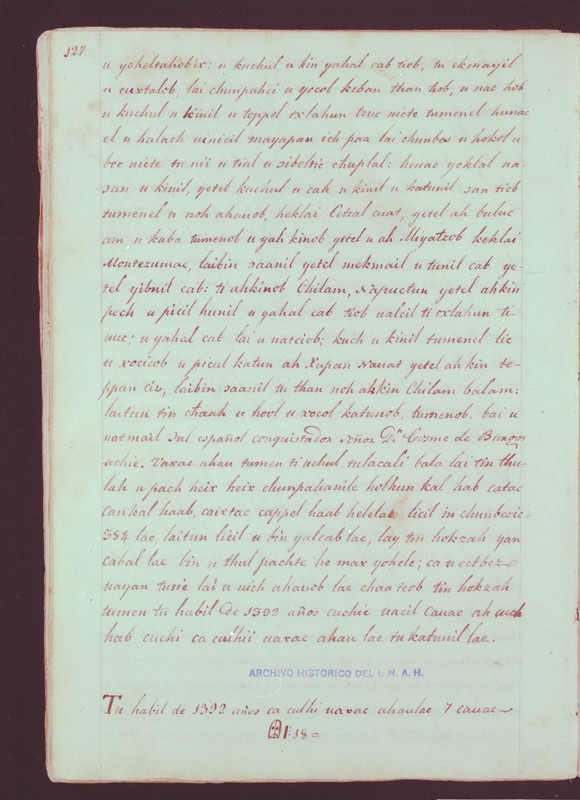 127
u yoheltahobix: u kuchul u kin yahal cab tiob, tu ekmayil
u cuxtalob, lai chunpahci u yocol keban than tiob, u nac tiob
u kuchul u kinil u toppol oxlahun tuuc nicte tumenel hunac
el u halach ninicil mayapan ich paa lai chunbes u hokol u
boc nicte tu nii u tial u siboltic chuplal: heuac yoklal na-
san u kinil, yetel kuchul u cah u kinil u katunil san tiob
tumenel u noh ahauob, heklai Cetzal cuat, yetel ah buluc
am, u kaba tumenob u yah kinob yetel u ah Miyatzob heklai
Montezumae, laibin saanil yetel mekmail u tunil cab ye-
tel yibnil cab: ti ahkinob Chilam, Napuctun yetel ahkin
pech u picil hunil u yahal cab tiob ualcil ti oxlahun ti
uuc; u yahal cab lai u natciob; kuch u kinil tumenel lic
u xocicob u picul katun ah Xupan Nauat yetel ah kin te-
ppan cix, laibin saasil tu than noh ahkin Chilam balam:
laitun tin chaah u hool u xocol katunob, tumenob. bai u
natmail Sul español conquistador señor Dn. Cosme de Burgos
uchie. Vaxac ahau tumen ti uchul tulacali bala lai tin thu-
lah u pach heix heix chunpahanile holhun kal hab catac
cankal haab, caixtac cappel haab helelae licil in chunbezic
384 lae, laitun licil u bin yalcab lae, lay tin hokzah yan
cabal lae bin u thul pachte he max yohele; ca u cetbez
uayan tusie lai u uich ahauob lae chaa teob tin hokzah
tumen tu habil de 1392 años cuchie uacil Cauac ah cuch
hab cuchi ca culhii uaxac ahau lae tu katunil lae.
ARCHIVO HISTORICO DEL I. N. A. H.
Tu habil de 1392 años ca culhi uaxac ahaulae 7 cauac
1:18=